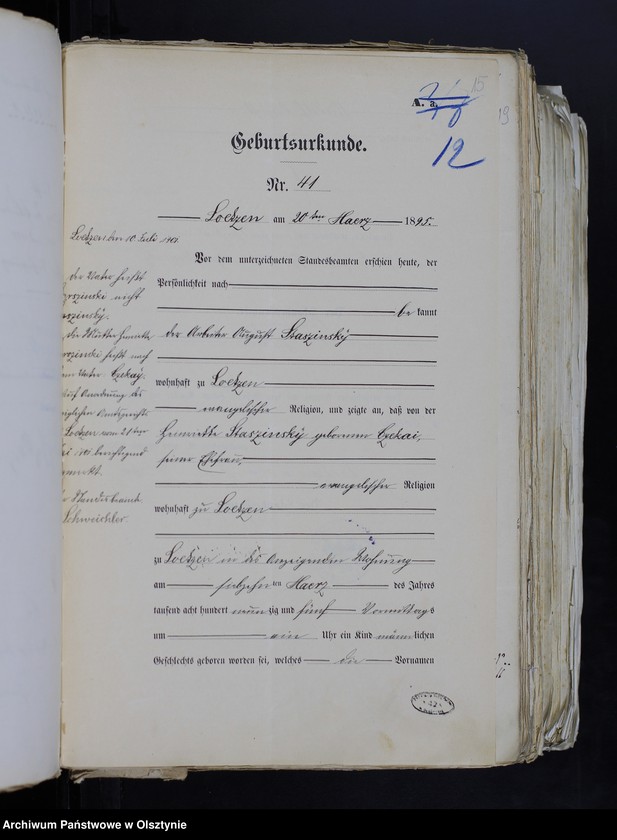 15
A. a.
19
12
Geburtsurkunde.
Nr. 41
Loetzen am 20ten Maerz 1895.
Vor dem unterzeichneten Standesbeamten erschien heute, der
Persönlichkeit nach
be kannt
der Arbeiter August Staszinsky
wohnhaft zu Loetzen
evangelischer Religion, und zeigte an, daß von der
Henriette Staszinsky geborenen Czekai,
seiner Ehefrau,
evangelischer Religion
wohnhaft zu Loetzen
zu Loetzen in des Anzeigenden Wohnung
am siebzehnten Maerz des Jahres
tausend acht hundert neunzig und fünf Vormittags
um ein Uhr ein Kind männlichen
Geschlechts geboren worden sei, welches die Vornamen
Loetzen den 10. Juli 1901.
der Vater heißt
nicht
die Mutter Henriette
heißt nach
Vater Czekay.
auf Anordnung des
Amtsgerichts
Loetzen vom 21ten
berichtigend
Standesbeamte
Schweichler
Archiwum Państwowe w Olsztynie